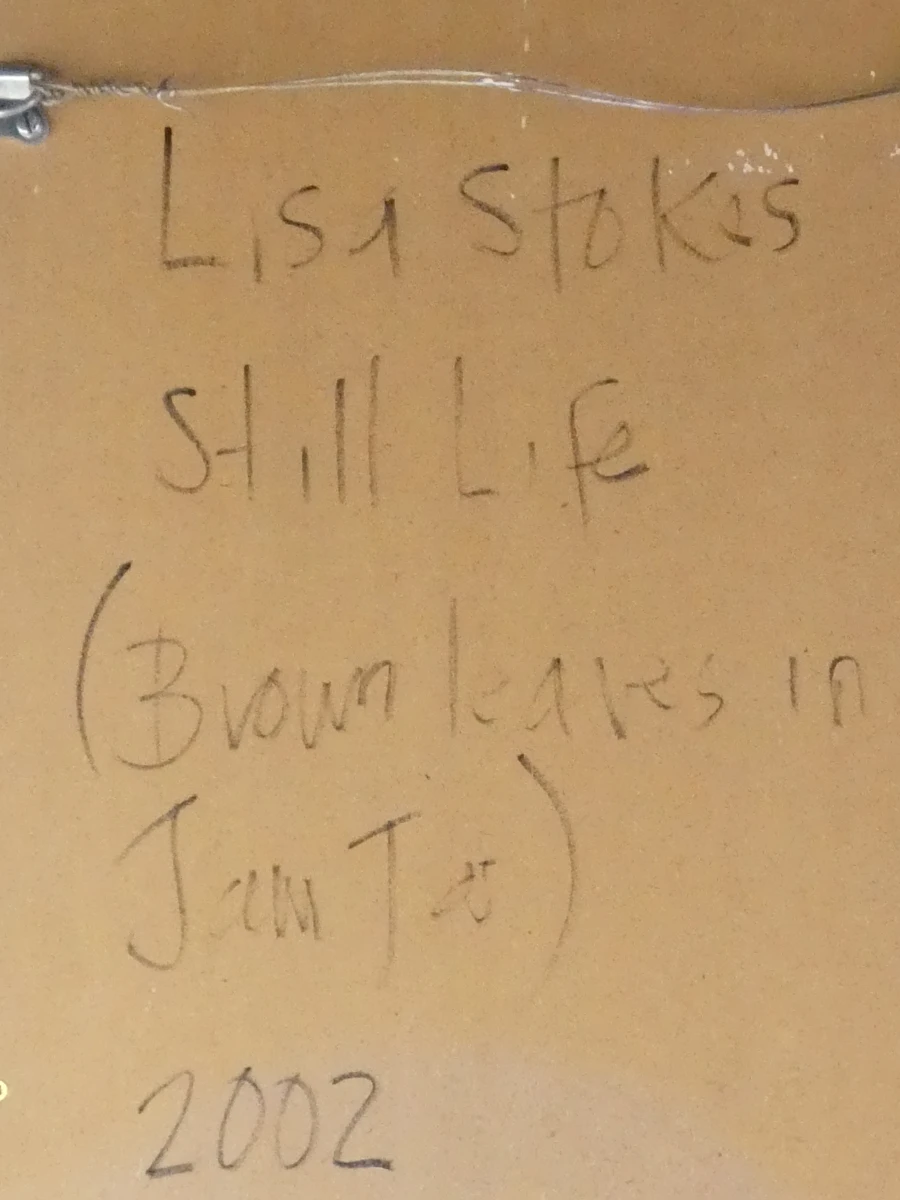 Lisa Stokes
Still Life
(Brown leaves in
Jam
2002